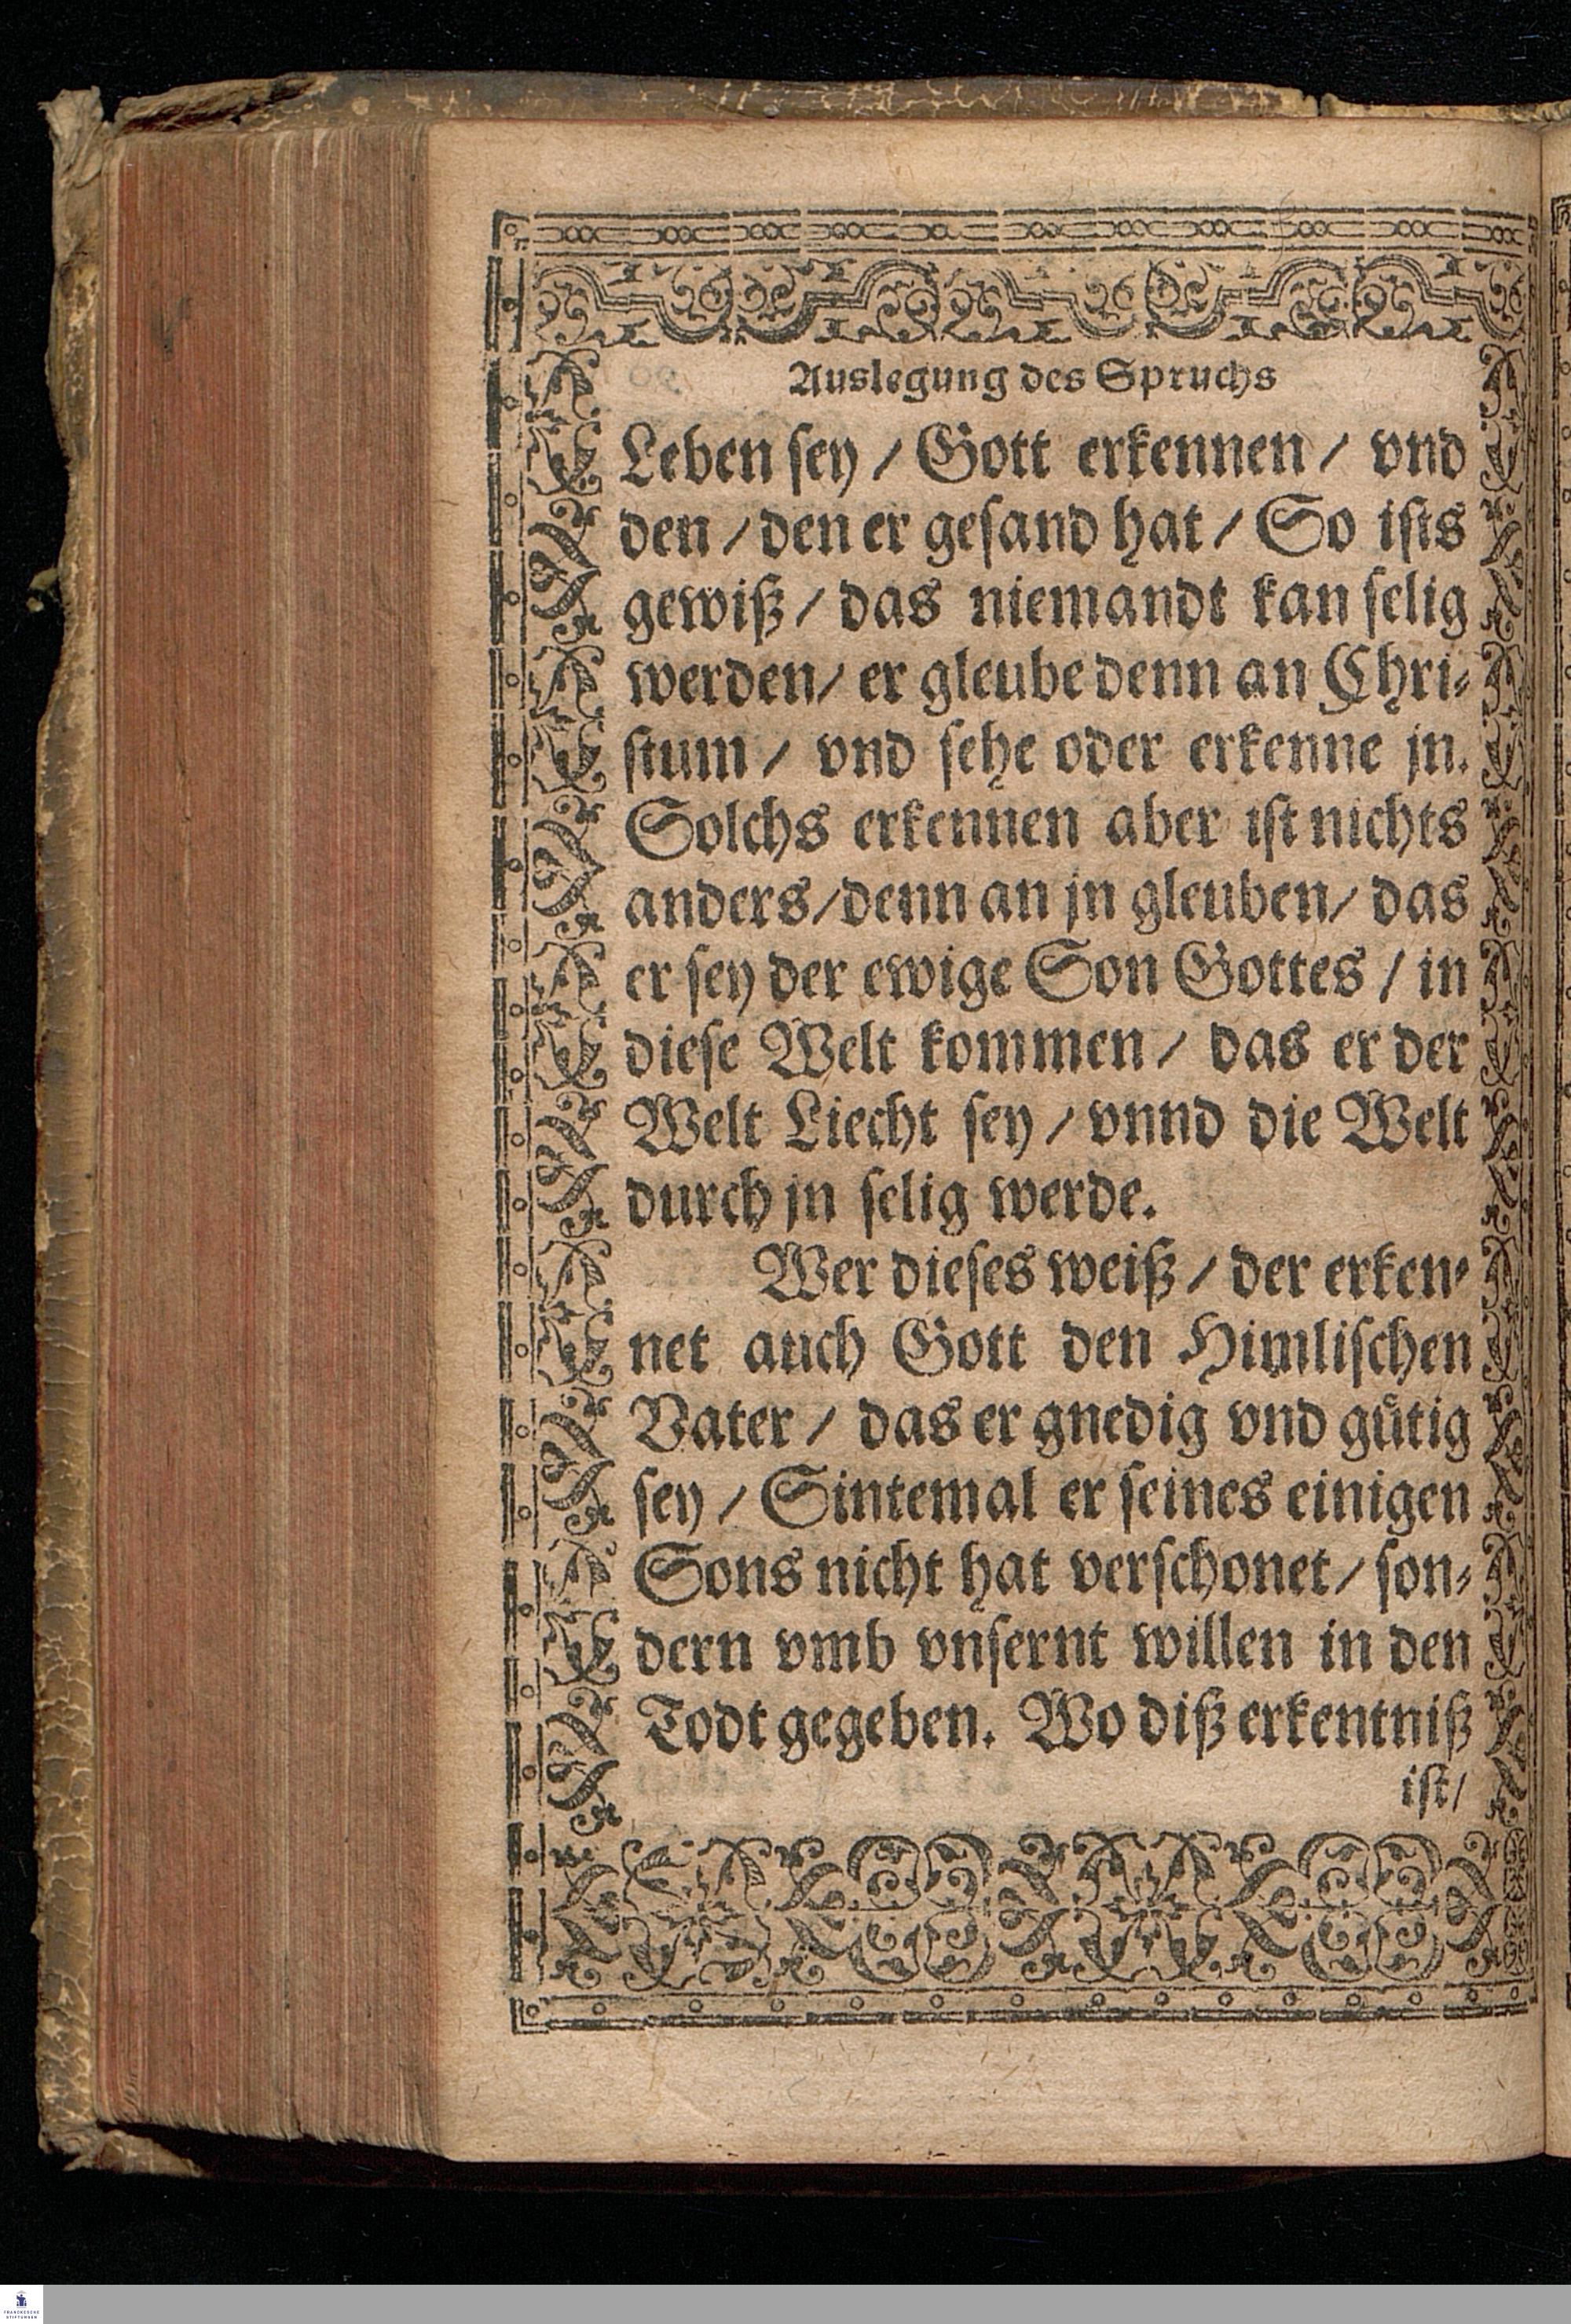 Auslegung des Spruchs
Leben sey / Gott erkennen / vnd
den / den er gesand hat / So ists
gewiß / das niemandt kan selig
werden / er gleube denn an Chri-
stum / vnd sehe oder erkenne jn.
Solchs erkennen aber ist nichts
anders / denn an jn gleuben / das
er sey der ewige Son Gottes / in
diese Welt kommen / das er der
Welt Liecht sey / vnnd die Welt
durch jn selig werde.
Wer dieses weiß / der erken-
net auch Gott den Himlischen
Vater / das er gnedig vnd gütig
sey / Sintemal er seines einigen
Sons nicht hat verschonet / son-
dern vmb vnsernt willen in den
Todt gegeben. Wo diß erkentniß
ist /
FRANCKESCHE
STIFTUNGEN